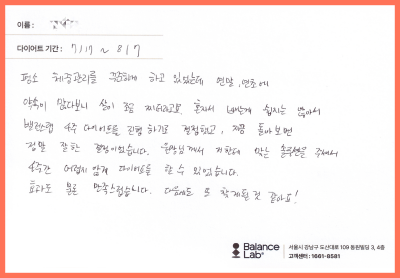 이름 :
다이어트 기간 : 7/17 ~ 8/7
평소 체중관리를 꾸준하게 하고 있었는데 연말, 연초에
약속이 많다보니 살이 조금 찌더라고요. 혼자서 빼는게 쉽지는 않아서
밸런스랩 4주 다이어트를 진행하기로 결정하고, 지금 돌아보면
정말 잘한 결정이었습니다. 원장님께서 저한테 맞는 솔루션을 주셔서
4주간 어렵지 않게 다이어트를 할 수 있었습니다.
효과도 물론 만족스럽습니다. 다음에도 또 찾게될 것 같아요!
Balance Lab®
서울시 강남구 도산대로 109 동원빌딩 3, 4층
고객센터 : 1661-8581